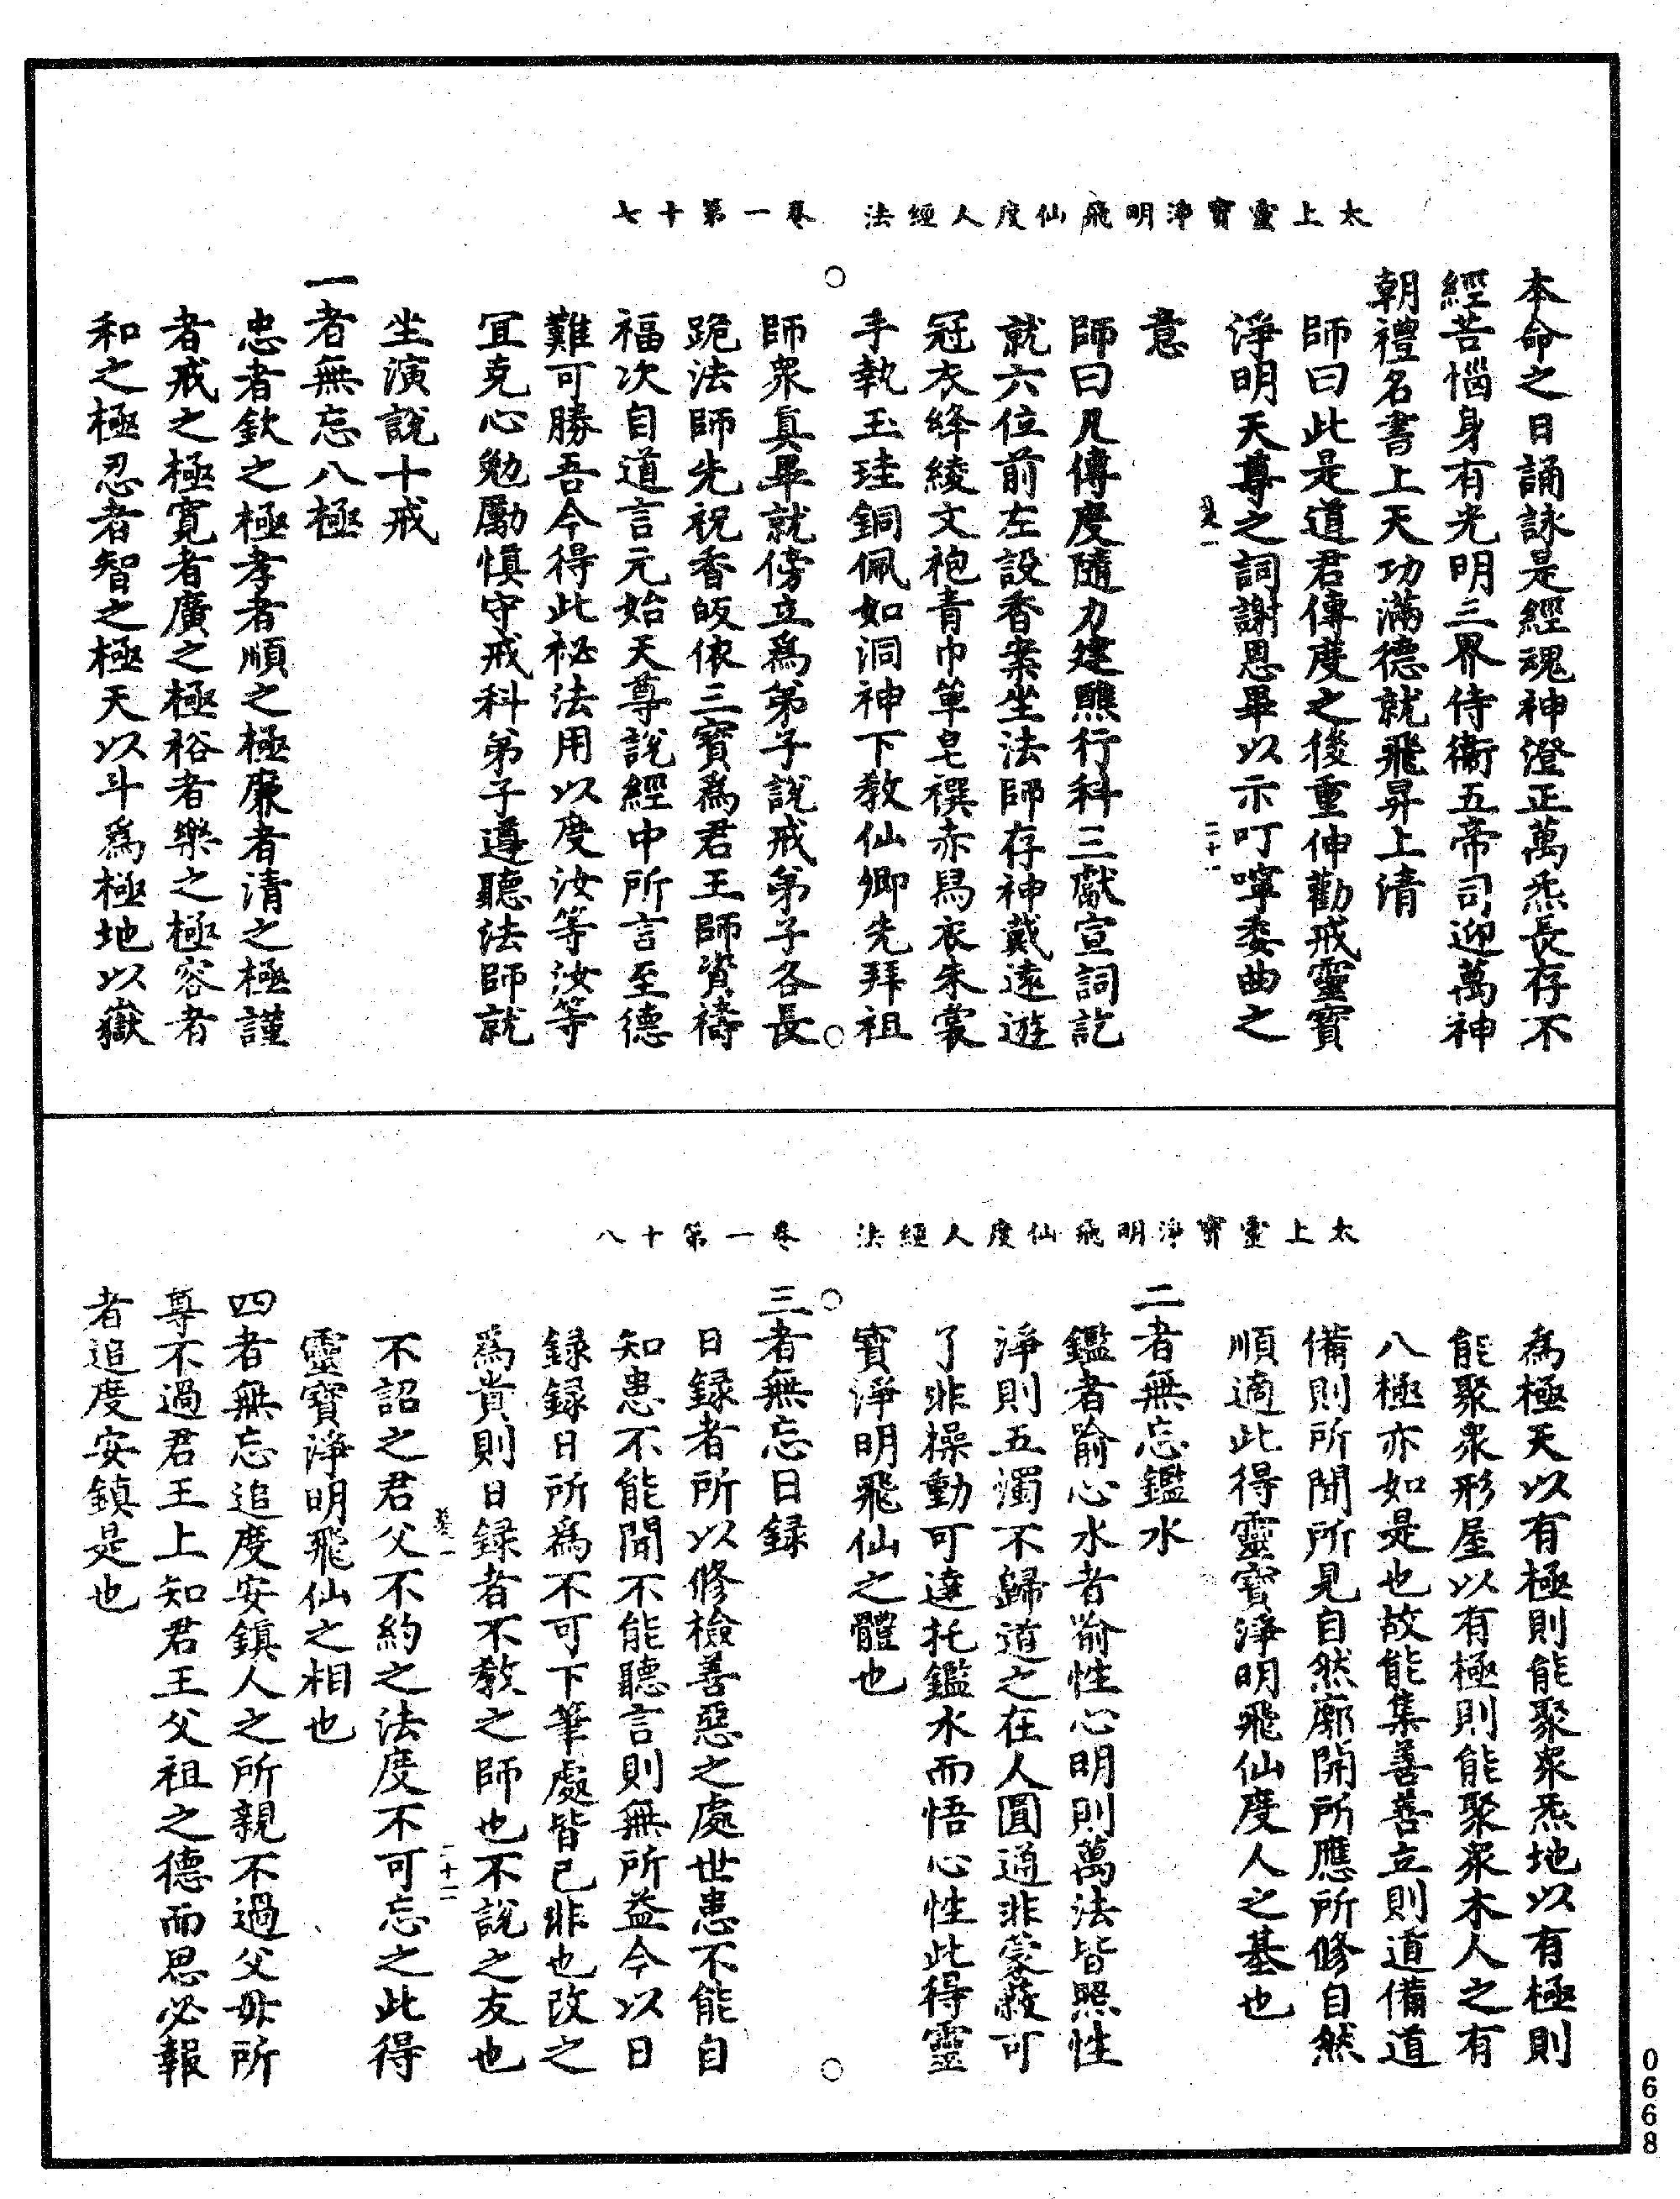 太上靈寶淨明飛仙度人經法　卷一第十七
本命之日誦詠是經魂神澄正萬炁長存不
經苦惱身有光明三界侍衞五帝司迎萬神
朝禮名書上天功滿德就飛昇上清
師曰此是道君傳度之後重伸勸戒靈寶
淨明天尊之詞謝恩畢以示叮嚀委曲之
意
師曰凡傳度隨力建醮行科三獻宣詞訖
就六位前左設香案坐法師存神戴遠遊
冠衣絳綾文袍青巾單皂襈赤舄衣朱裳
手執玉珪銅佩如洞神下教仙卿先拜祖
師衆真畢就傍立爲弟子說戒弟子各長
跪法師先祝香皈依三寶爲君王師資禱
福次自道言元始天尊說經中所言至德
難可勝吾今得此祕法用以度汝等汝等
宜克心勉勵慎守戒科弟子遵聽法師就
坐演說十戒
一者無忘八極
忠者欽之極孝者順之極廉者清之極謹
者戒之極寬者廣之極裕者樂之極容者
和之極忍者智之極天以斗爲極地以嶽
太上靈寶淨明飛仙度人經法　卷一第十八
爲極天以有極則能聚衆炁地以有極則
能聚衆形屋以有極則能聚衆木人之有
八極亦如是也故能集善善立則道備道
備則所聞所見自然廓開所應所修自然
順適此得靈寶淨明飛仙度人之基也
二者無忘鑑水
鑑者喻心水者喻性心明則萬法皆照性
淨則五濁不歸道之在人圓通非蒙蔽可
了非操動可達托鑑水而悟心性此得靈
寶淨明飛仙之體也
三者無忘日録
日録者所以修檢善惡之處世患不能自
知患不能聞不能聽言則無所益今以日
録録日所爲不可下筆處皆已非也改之
爲貴則日録者不教之師也不說之友也
不詔之君父不約之法度不可忘之此得
靈寶淨明飛仙之相也
四者無忘追度安鎮人之所親不過父毋所
尊不過君王上知君王父祖之德而思必報
者追度安鎮是也
0668